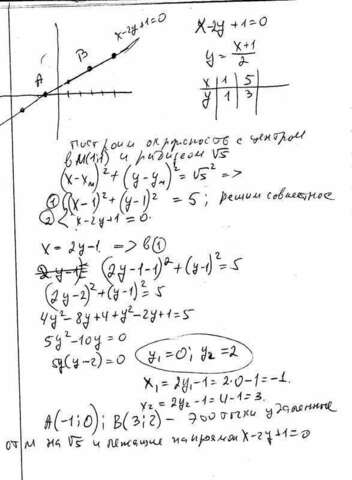 x-2y+1=0
B
A
x-2y+1=0
y = x+1 / 2
x | 1 | 5
y | 1 | 3
построим окружность с центром
в M(1;1) и радиусом √5
(x-xм)² + (y-yм)² = √5² =>
① { (x-1)² + (y-1)² = 5; решим совместное
② { x-2y+1=0.
x = 2y-1. => в ①
(2y-1-1)² + (y-1)² = 5
(2y-2)² + (y-1)² = 5
4y²-8y+4+y²-2y+1=5
5y²-10y=0
5y(y-2)=0
y₁=0; y₂=2
x₁ = 2y₁-1 = 2·0-1 = -1.
x₂ = 2y₂-1 = 4-1 = 3.
A(-1;0); B(3;2) - это точки удаленные
от M на √5 и лежащие на прямой x-2y+1=0